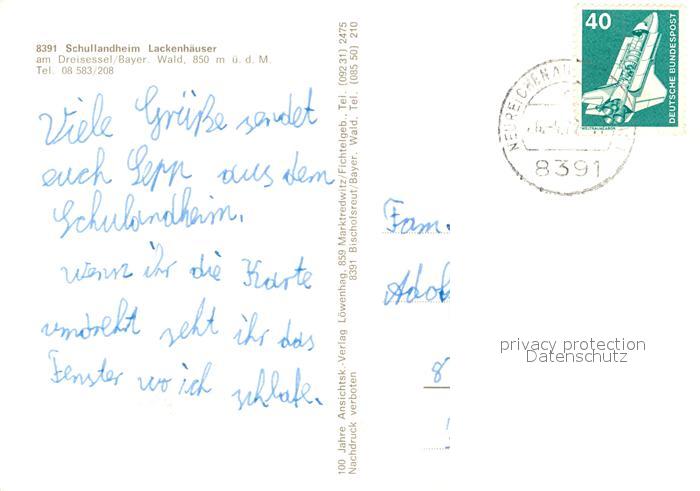 8391 Schullandheim Lackenhäuser
am Dreisessel/Bayer. Wald, 850 m ü. d. M.
Tel. 08 583/208
Viele Grüße sendet
euch Sepp aus dem
Schulandheim.
wenn ihr die Karte
umdreht seht ihr das
Fenster wo ich schlafe.
100 Jahre Ansichtsk.-Verlag Löwenhag, 859 Marktredwitz/Fichtelgeb., Tel. (092 31) 2475
Nachdruck verboten 8391 Bischofsreut/Bayer. Wald, Tel. (085 50) 210
40
DEUTSCHE BUNDESPOST
WELTRAUMLABOR
8391
Fam.
Adol
8
privacy protection
Datenschutz